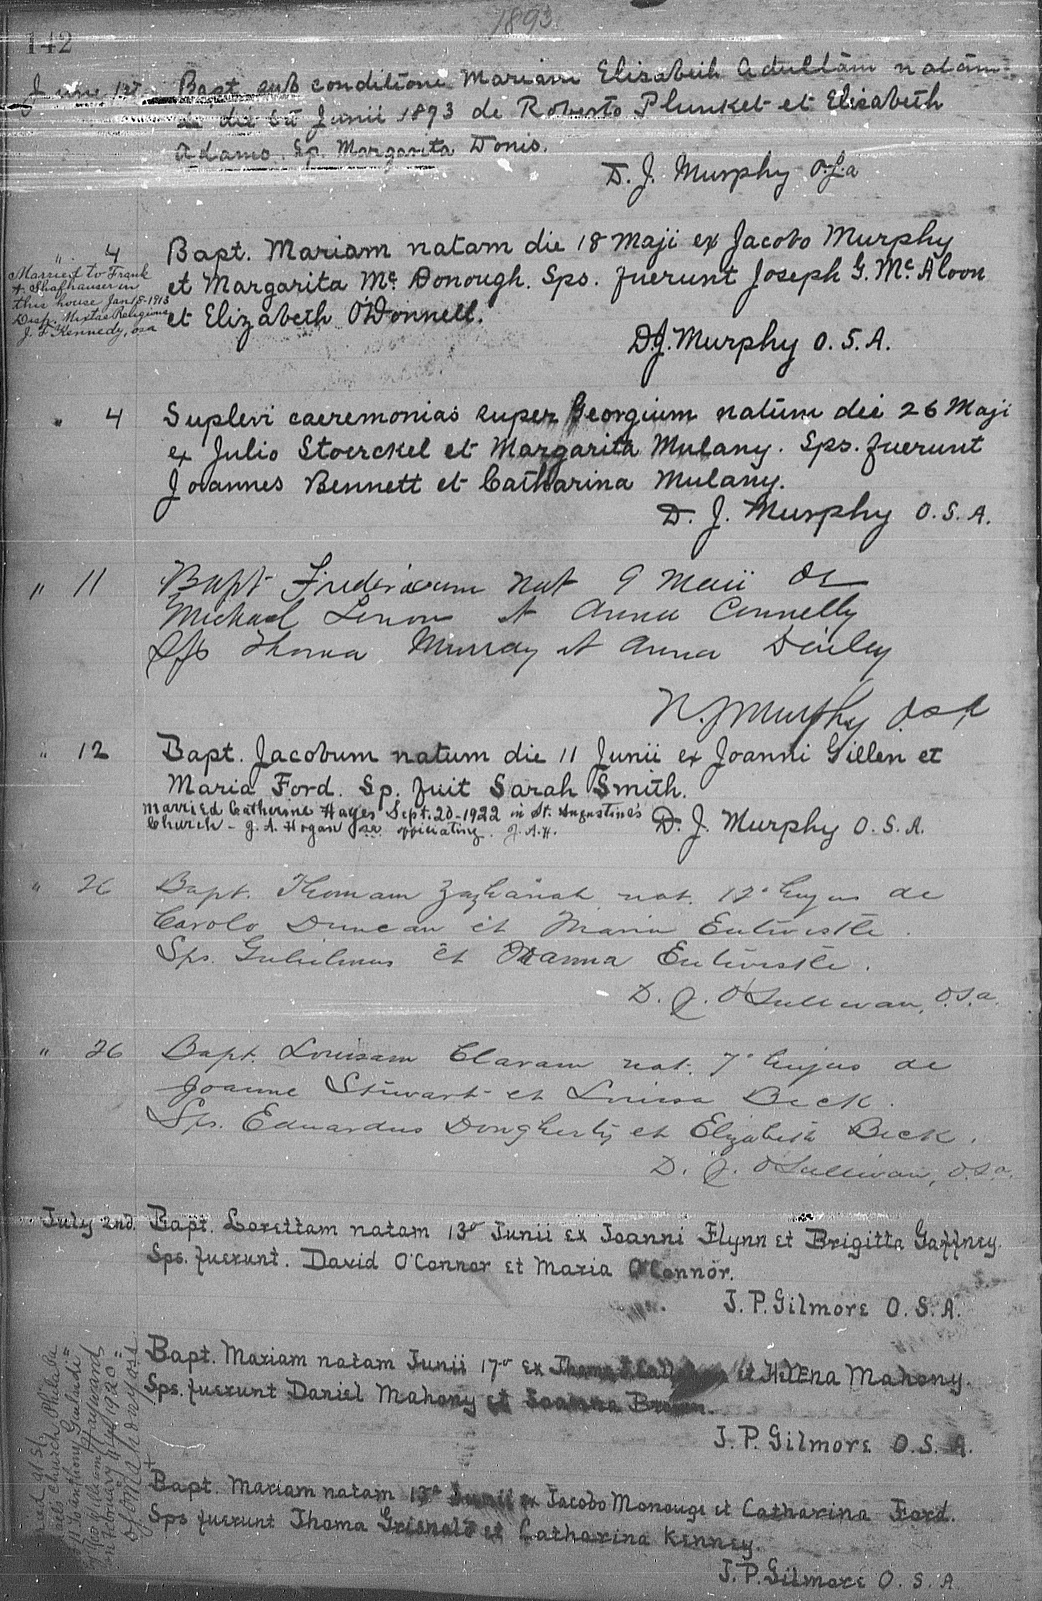 1893.
142
June 1st. Bapt. sub conditione Mariam Elisabeth adultam natam
die 1ª Junii 1893 de Roberto Plunket et Elisabeth
Adams. Sp. Margarita Donis.
D. J. Murphy O.S.a
" 4 Bapt. Mariam natam die 18 Maji ex Jacobo Murphy
et Margarita Mc Donough. Sps. fuerunt Joseph G. Mc Aloon
et Elizabeth O'Donnell.
Married to Frank
A. Shafhauser in
this house Jan 18-1913
Disp. Mixtae Religionis
J. F. Kennedy, osa
D.J. Murphy O.S.A.
" 4 Suplevi caeremonias super Georgium natum die 26 Maji
ex Julio Stoerckel et Margarita Mulany. Sps. fuerunt
Joannes Bennett et Catharina Mulany.
D. J. Murphy O.S.A.
" 11 Bapt Fredericum nat 9 Maii de
Michael Lenon et Anna Connelly
Sps Thoma Murray et Anna Dailey
N. J Murphy O.S.A
" 12 Bapt. Jacobum natum die 11 Junii ex Joanni Gillen et
Maria Ford. Sp. fuit Sarah Smith.
Married Catherine Hayes Sept. 20-1922 in St. Augustine's
Church - J. A. Hogan osa officiating. J.A.H.
D. J. Murphy O.S.A.
" 26 Bapt. Thomam Zachariah nat. 12° hujus de
Carolo Duncan et Maria Entwistle.
Sps. Gulielmus et Joanna Entwistle.
D. J. O'Sullivan, O.S.a.
" 26 Bapt. Louisam Claram nat. 7° hujus de
Joanne Stewart et Louisa Beck.
Sps. Eduardus Dougherty et Elizabeth Beck.
D. J. O'Sullivan, O.S.a.
July 2nd. Bapt. Lorettam natam 13º Junii ex Joanni Flynn et Brigitta Gaffney.
Sps. fuerunt. David O'Connor et Maria O'Connor.
J. P. Gilmore O.S.A.
Bapt. Mariam natam Junii 17º ex Thoma et Helena Mahony.
Sps. fuerunt Daniel Mahony et Joanna Brown.
J. P. Gilmore O.S.A.
Bapt. Mariam natam 13º Junii ex Jacobo Monouge et Catharina Ford.
Sps fuerunt Thoma et Catharina Kenney.
J. P. Gilmore O.S.A
at St.
Church, Phila Pa
to Anthony
in February 1920